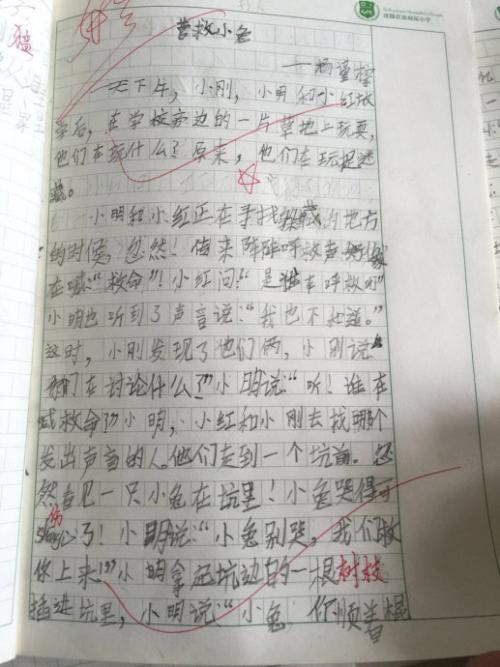 营救小兔
一天下午，小刚，小明和小红放
学后，在学校旁边的一片草地上玩耍，
他们在玩什么？原来，他们在玩捉迷
藏。
小明和小红正在寻找躲藏的地方
的时候，忽然！传来阵阵呼救声
在喊："救命"！小红问："是谁在呼救呀"
小明也听到了声音说："我也不知道。"
这时，小刚发现了他们俩，小刚说
你们在讨论什么？"小明说："听！谁在
喊救命？"小明，小红和小刚去找那个
发出声音的人。他们走到一个坑前。忽
然看见一只小兔在坑里！小兔哭得可
伤心了！小明说："小兔别哭，我们救
你上来！"小明拿起坑边的一根树枝
插进坑里，小明说："小兔 你顺着棍